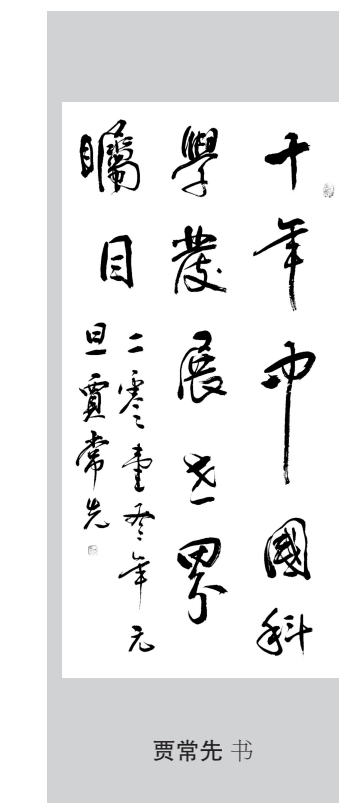 十年中国科
學發展世界
矚目
二零壹零年元
旦賈常先
贾常先 书